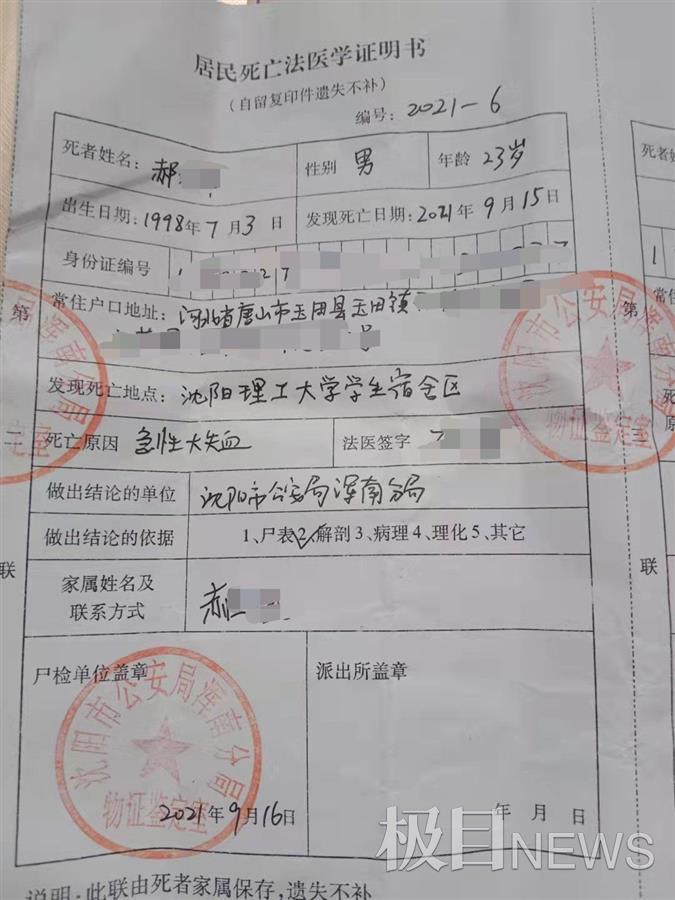 居民死亡法医学证明书
（自留复印件遗失不补）
编号：2021-6
死者姓名：郝 性别 男 年龄 23岁
出生日期：1998年7月3日 发现死亡日期：2021年9月15日
身份证编号
常住户口地址：河北省唐山市玉田县玉田镇
号
发现死亡地点：沈阳理工大学学生宿舍区
死亡原因 急性大失血 法医签字
做出结论的单位 沈阳市公安局浑南分局
做出结论的依据 1、尸表2、解剖3、病理4、理化5、其它
家属姓名及
联系方式
郝
尸检单位盖章 派出所盖章
沈阳市公安局浑南分局
物证鉴定室
2021年9月16日 年 月 日
说明：此联由死者家属保存，遗失不补
第
二
联
第
三
联
死者姓
出生
身
常住
发现
死亡
做
做
沈阳市公安局浑南分局
物证鉴定室
分局
定室
极目NEWS